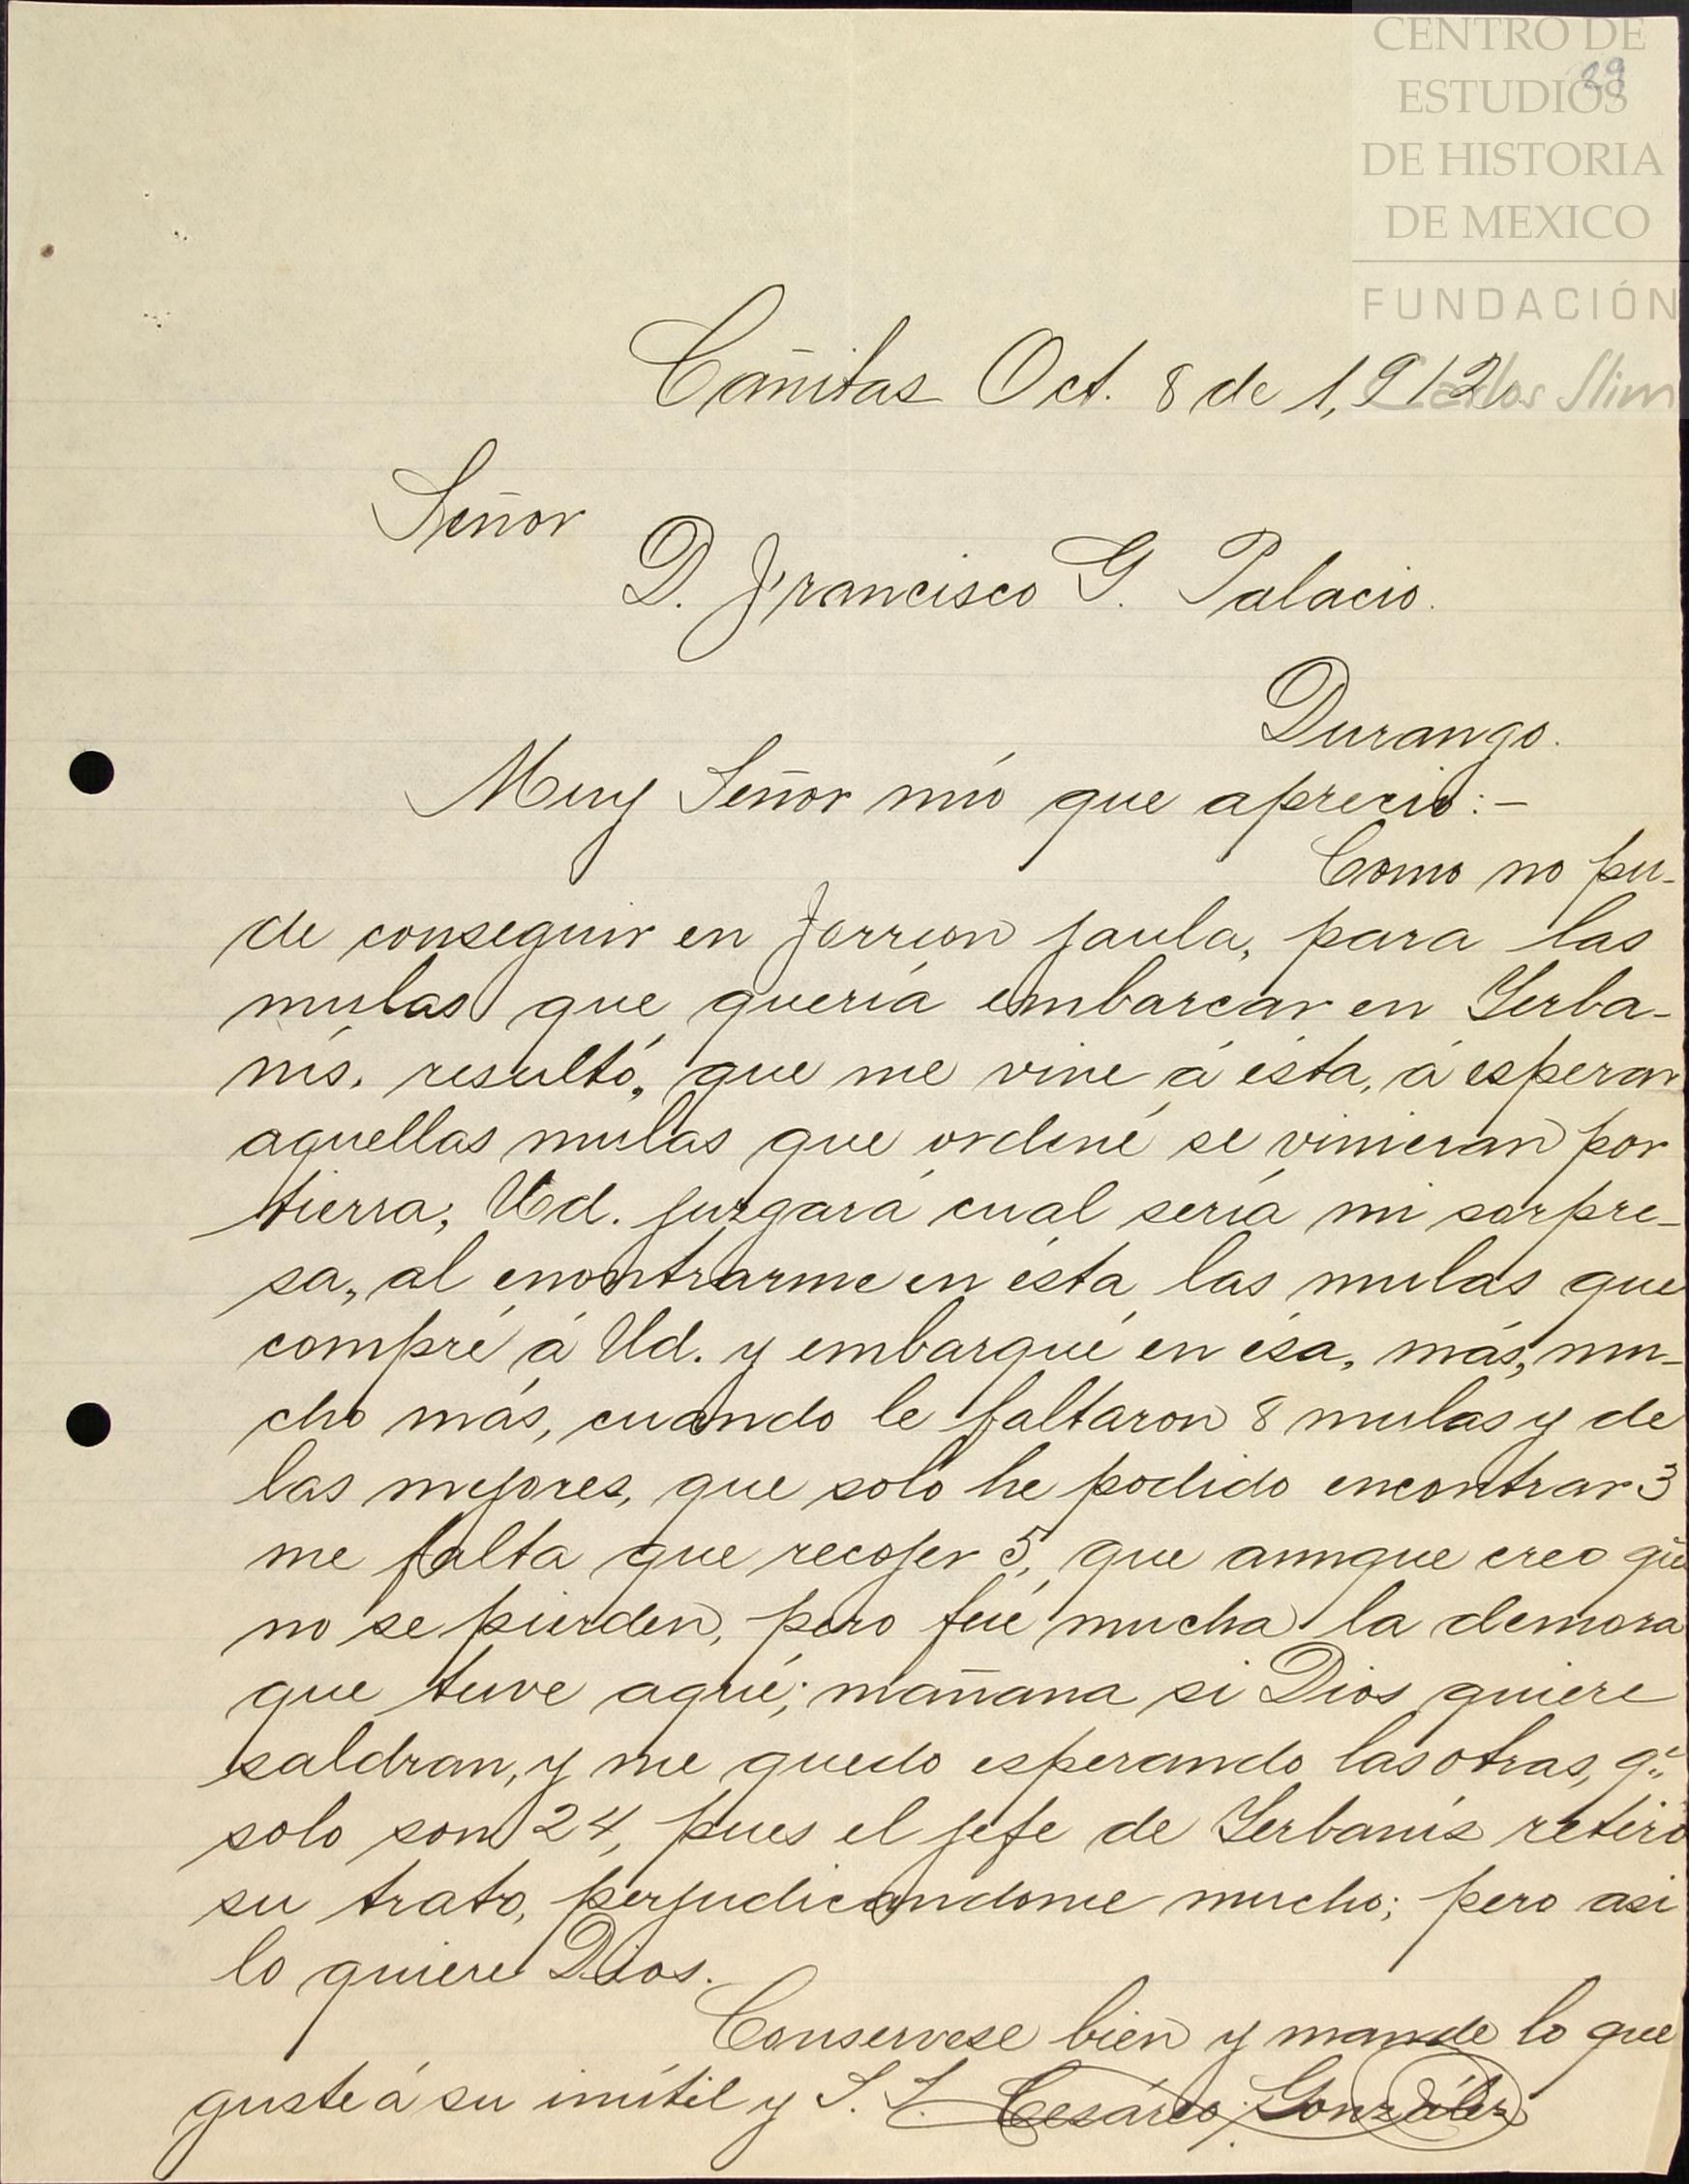 CENTRO DE
ESTUDIOS
DE HISTORIA
DE MEXICO
FUNDACIÓN
Carlos Slim
29
Cañitas Oct. 8 de 1,912
Señor
D. Francisco G. Palacio.
Durango.
Muy Señor mío que aprecio:-
Como no pu-
de conseguir en Torreon jaula, para las
mulas que quería embarcar en Yerba-
nís, resultó, que me vine á ésta, á esperar
aquellas mulas que ordené se vinieran por
tierra; Ud. juzgará cual sería mi sorpre-
sa, al enontrarme en ésta las mulas que
compré á Ud. y embarqué en ésa, más, mu-
cho más, cuando le faltaron 8 mulas y de
las mejores, que solo he podido encontrar 3
me falta que recojer 5, que aunque creo que
no se pierden, pero fué mucha la demora
que tuve aquí; mañana si Dios quiere
saldran, y me quedo esperando las otras, q.e
solo son 24, pues el jefe de Yerbanís retiró
su trato, perjudicandome mucho; pero asi
lo quiere Dios.
Conservese bien y mande lo que
guste á su inútil y S. S. Cesáreo González